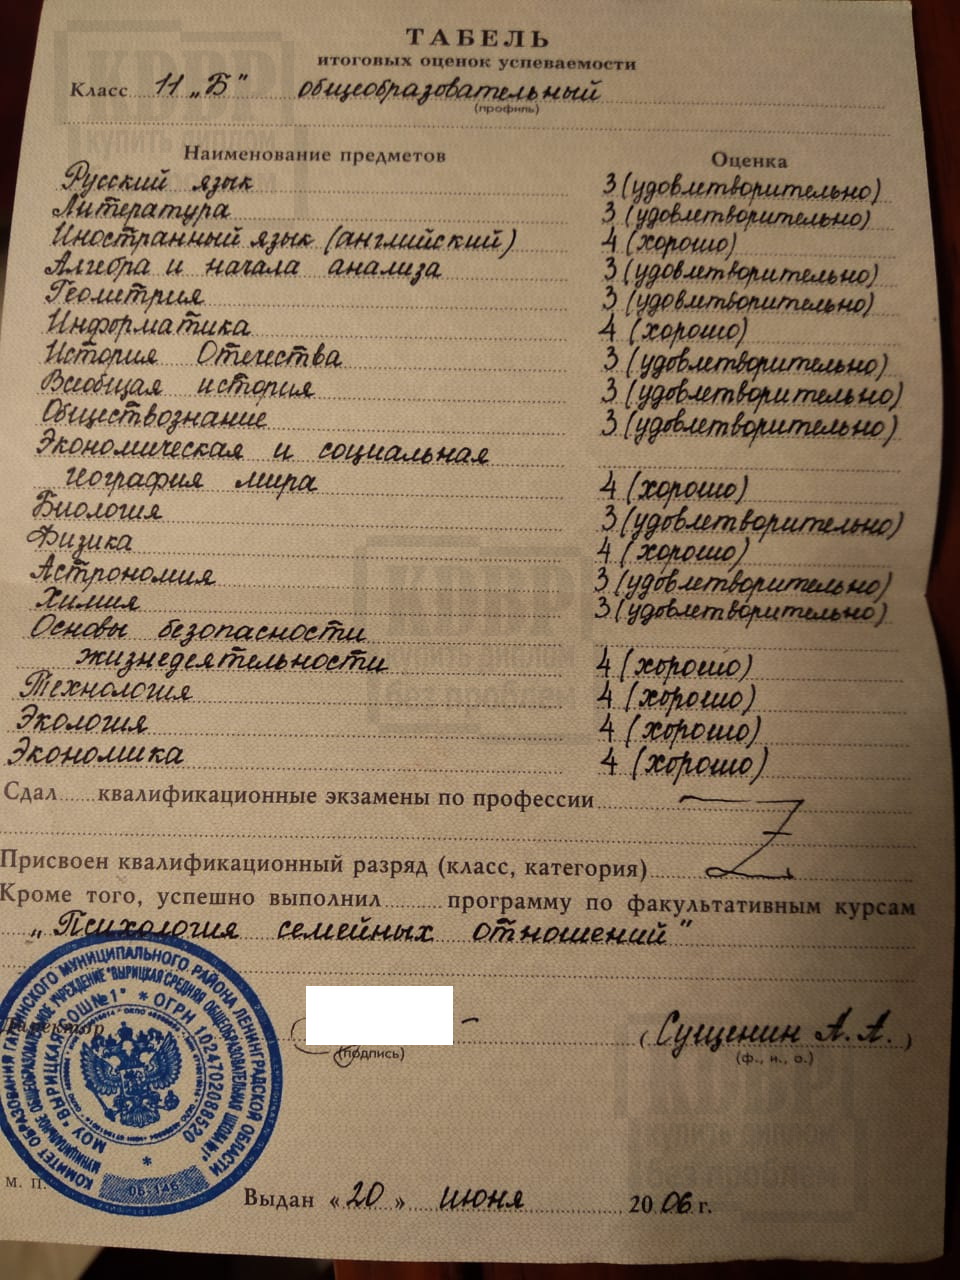 ТАБЕЛЬ
итоговых оценок успеваемости
Класс 11 „Б" общеобразовательный
(профиль)
купить диплом
Наименование предметов Оценка
Русский язык 3 (удовлетворительно)
Литература 3 (удовлетворительно)
Иностранный язык (английский) 4 (хорошо)
Алгебра и начала анализа 3 (удовлетворительно)
Геометрия 3 (удовлетворительно)
Информатика 4 (хорошо)
История Отечества 3 (удовлетворительно)
Всеобщая история 3 (удовлетворительно)
Обществознание 3 (удовлетворительно)
Экономическая и социальная
география мира 4 (хорошо)
Биология 3 (удовлетворительно)
Физика 4 (хорошо)
Астрономия 3 (удовлетворительно)
Химия 3 (удовлетворительно)
Основы безопасности
жизнедеятельности 4 (хорошо)
Технология 4 (хорошо)
Экология 4 (хорошо)
Экономика 4 (хорошо)
Сдал квалификационные экзамены по профессии
Присвоен квалификационный разряд (класс, категория)
Кроме того, успешно выполнил программу по факультативным курсам
„Психология семейных отношений"
Директор (Сущенин А.А.)
(подпись) (ф., и., о.)
КОМИТЕТ ОБРАЗОВАНИЯ ГАТЧИНСКОГО МУНИЦИПАЛЬНОГО РАЙОНА ЛЕНИНГРАДСКОЙ ОБЛАСТИ
МУНИЦИПАЛЬНОЕ ОБЩЕОБРАЗОВАТЕЛЬНОЕ УЧРЕЖДЕНИЕ "ВЫРИЦКАЯ СРЕДНЯЯ ОБЩЕОБРАЗОВАТЕЛЬНАЯ ШКОЛА №1"
МОУ "ВЫРИЦКАЯ СОШ №1" * ОГРН 1024702088520 *
06-146
М. П.
Выдан «20» июня 2006 г.